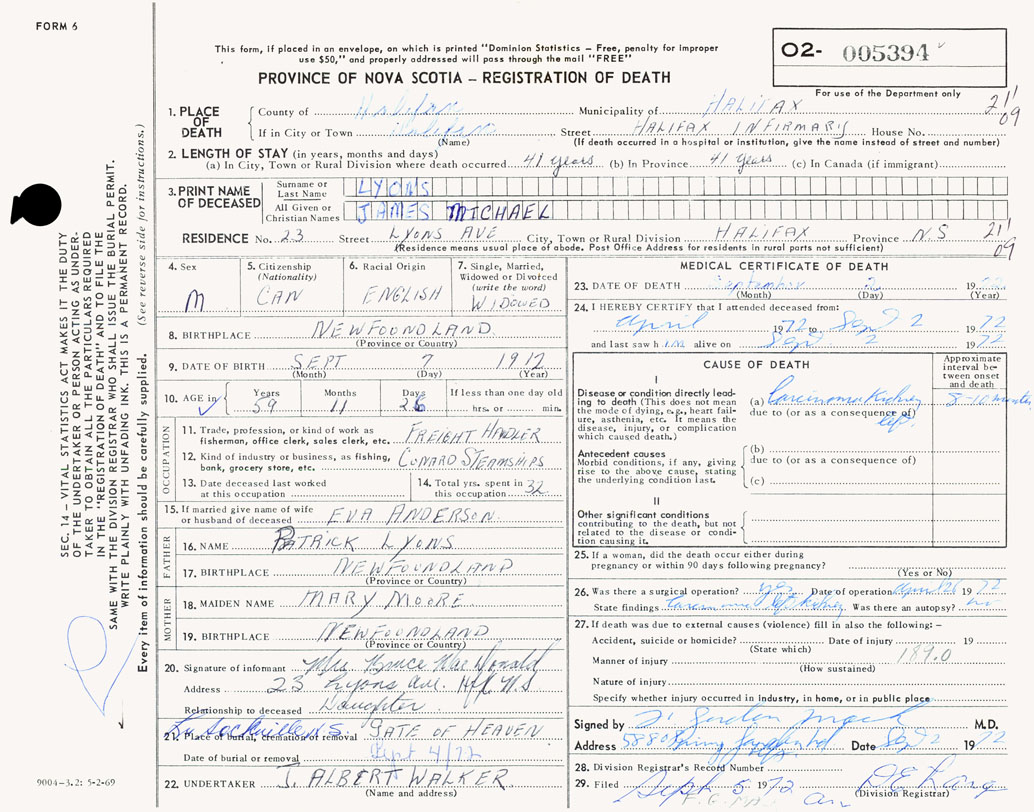 FORM 6
This form, if placed in an envelope, on which is printed "Dominion Statistics – Free, penalty for improper
use $50," and properly addressed will pass through the mail "FREE"
PROVINCE OF NOVA SCOTIA – REGISTRATION OF DEATH
O2- 005394
For use of the Department only
211
09
1. PLACE OF DEATH
County of Halifax Municipality of HALIFAX
If in City or Town Halifax Street HALIFAX INFIRMARY House No.
(Name) (If death occurred in a hospital or institution, give the name instead of street and number)
2. LENGTH OF STAY (in years, months and days)
(a) In City, Town or Rural Division where death occurred 41 years (b) In Province 41 years (c) In Canada (if immigrant)
3. PRINT NAME OF DECEASED
Surname or Last Name LYONS
All Given or Christian Names JAMES MICHAEL
RESIDENCE No. 23 Street LYONS AVE City, Town or Rural Division HALIFAX Province N.S
(Residence means usual place of abode. Post Office Address for residents in rural parts not sufficient)
211
09
4. Sex M
5. Citizenship (Nationality) CAN
6. Racial Origin ENGLISH
7. Single, Married, Widowed or Divorced (write the word) WIDOWED
8. BIRTHPLACE NEWFOUNDLAND
(Province or Country)
9. DATE OF BIRTH SEPT 7 1912
(Month) (Day) (Year)
10. AGE in Years 59 Months 11 Days 26 If less than one day old hrs. or min.
OCCUPATION
11. Trade, profession, or kind of work as fisherman, office clerk, sales clerk, etc. FREIGHT HANDLER
12. Kind of industry or business, as fishing, bank, grocery store, etc. CUNARD STEAMSHIPS
13. Date deceased last worked at this occupation
14. Total yrs. spent in this occupation 32
15. If married give name of wife or husband of deceased EVA ANDERSON
FATHER
16. NAME PATRICK LYONS
17. BIRTHPLACE NEWFOUNDLAND
(Province or Country)
MOTHER
18. MAIDEN NAME MARY MOORE
19. BIRTHPLACE NEWFOUNDLAND
(Province or Country)
20. Signature of informant Mrs Bruce MacDonald
Address 23 Lyons Ave. Hfx N.S.
Relationship to deceased Daughter
21. Place of burial, cremation or removal Sackville N.S. GATE OF HEAVEN
Date of burial or removal Sept 4/72
22. UNDERTAKER J. ALBERT WALKER
(Name and address)
MEDICAL CERTIFICATE OF DEATH
23. DATE OF DEATH September 2 1972
(Month) (Day) (Year)
24. I HEREBY CERTIFY that I attended deceased from:
April 1972 to Sept 2 1972
and last saw him alive on Sept 2 1972
CAUSE OF DEATH
Approximate interval between onset and death
I
Disease or condition directly leading to death (This does not mean the mode of dying, e.g., heart failure, asthenia, etc. It means the disease, injury, or complication which caused death.)
(a) Carcinoma Kidney 8-10 months
due to (or as a consequence of)
left
Antecedent causes
Morbid conditions, if any, giving rise to the above cause, stating the underlying condition last.
(b)
due to (or as a consequence of)
(c)
II
Other significant conditions contributing to the death, but not related to the disease or condition causing it.
25. If a woman, did the death occur either during pregnancy or within 90 days following pregnancy?
(Yes or No)
26. Was there a surgical operation? yes Date of operation April 26 1972
State findings Carcinoma left kidney Was there an autopsy? no
27. If death was due to external causes (violence) fill in also the following: –
Accident, suicide or homicide? Date of injury 19
(State which)
Manner of injury 189.0
(How sustained)
Nature of injury
Specify whether injury occurred in industry, in home, or in public place
Signed by Gordon M.D.
Address 5880 Spring Garden Rd Date Sept 2 1972
28. Division Registrar's Record Number
29. Filed Sept 5 1972
(Division Registrar)
SEC. 14 – VITAL STATISTICS ACT MAKES IT THE DUTY
OF THE UNDERTAKER OR PERSON ACTING AS UNDER-
TAKER TO OBTAIN ALL THE PARTICULARS REQUIRED
IN THE "REGISTRATION OF DEATH" AND TO FILE THE
SAME WITH THE DIVISION REGISTRAR WHO SHALL ISSUE THE BURIAL PERMIT.
WRITE PLAINLY WITH UNFADING INK. THIS IS A PERMANENT RECORD.
Every item of information should be carefully supplied. (See reverse side for instructions.)
9004-3.2: 5-2-69